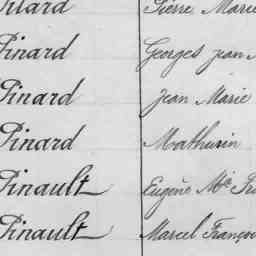 Pilard Pierre Marie
Pinard Georges Jean
Pinard Jean Marie
Pinard Mathurin
Pinault Eugène Mie
Pinault Marcel François